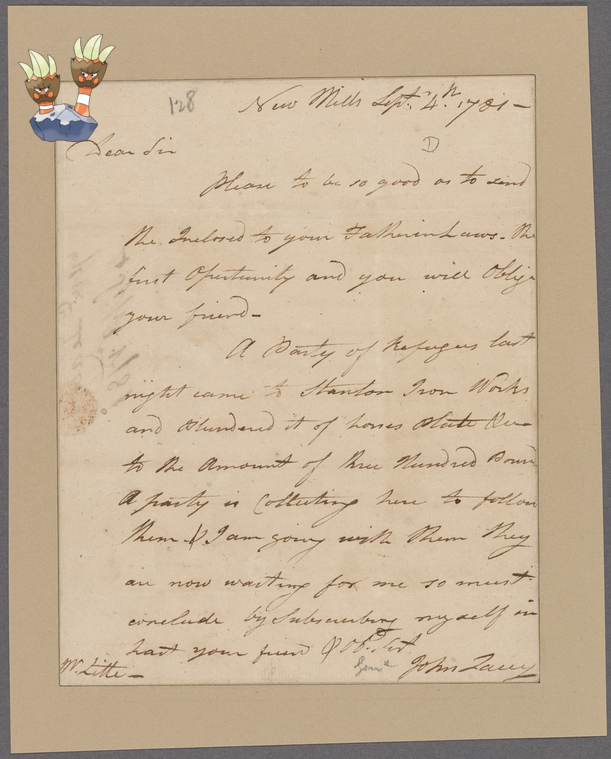 128
New Mills Sept. 4th. 1781 –
D
Dear Sir
Please to be so good as to send
the Inclosed to your Fatherin Laws. the
first Opertunity and you will Oblige
your friend –
A Party of Refugees last
night came to Stanton Iron Works
and Plundered it of horses Plate &c
to the Amount of three Hundred Pound
A party is Collecting here to follow
them & I am going with them they
are now waiting for me so must
conclude by Subscribing myself in
hast your friend & Obt. Servt.
Genl
John Lacey
Mr. Little –